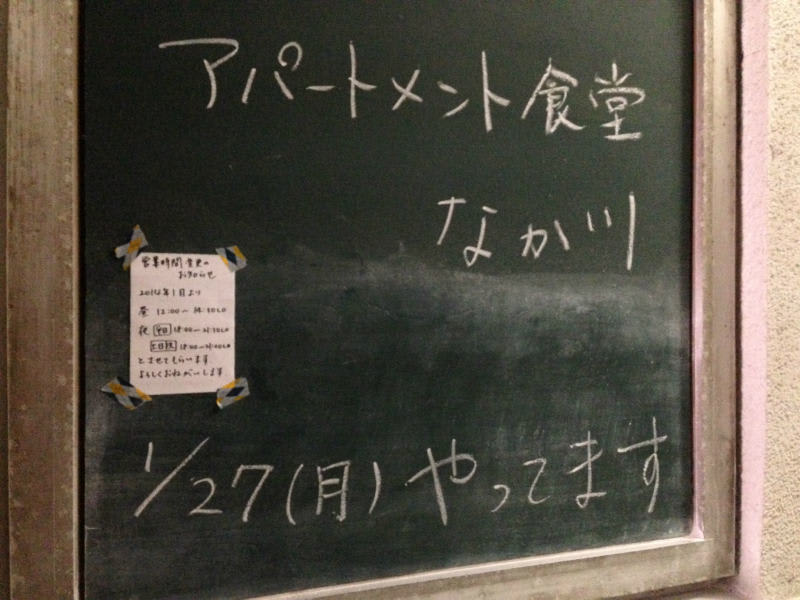 アパートメント食堂
なか川
営業時間変更の
お知らせ
2014年1月より
昼 12:00～
夜 平日 18:00～
土日祝 18:00～
とさせてもらいます
よろしくおねがいします
1/27(月)やってます